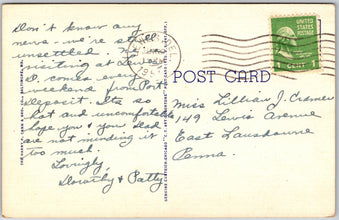 Don't know any
news - we're still
unsettled. We're
visiting at
D. comes every
weekend from Port
Deposit. It's so
hot and uncomfortable
hope you & your Dad
are not minding it
too much.
Lovingly,
Dorothy & Patty
UNITED STATES
POSTAGE
1 CENT 1
POST CARD
Miss Lillian J. Cramer
149 Lewis Avenue
East Lansdowne
Penna.